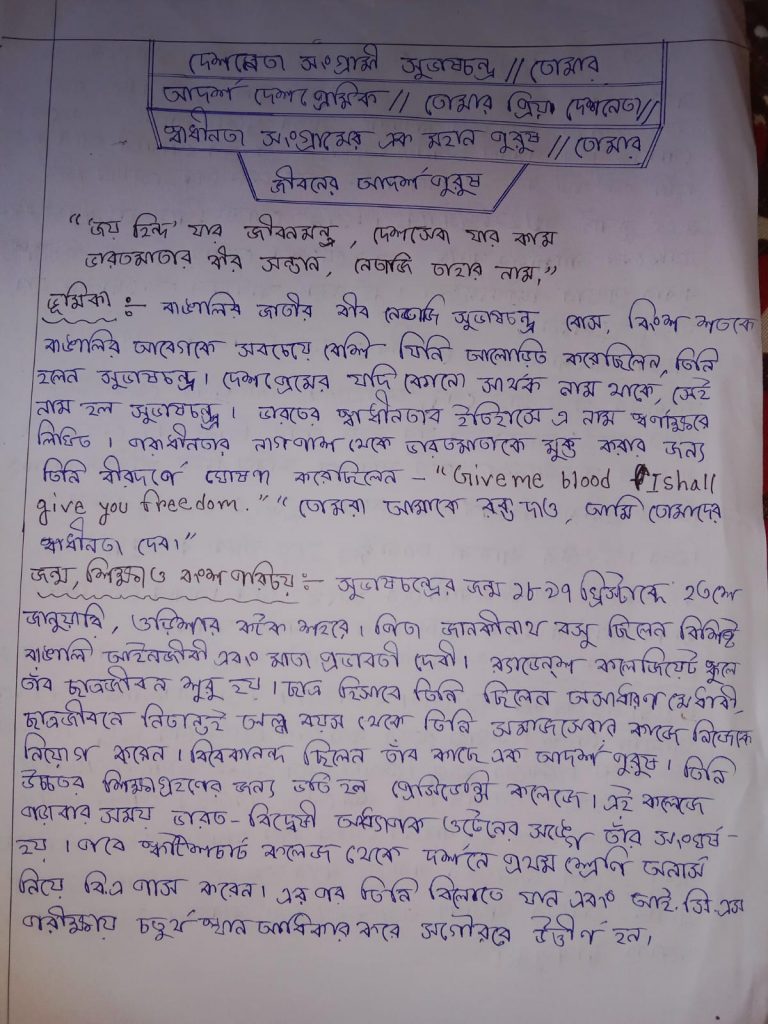 দেশনেতা সংগ্রামী সুভাষচন্দ্র // তোমার
আদর্শ দেশপ্রেমিক // তোমার প্রিয় দেশনেতা//
স্বাধীনতা সংগ্রামের এক মহান পুরুষ // তোমার
জীবনের আদর্শ পুরুষ
"জয় হিন্দ' যার জীবনমন্ত্র, দেশসেবা যার কাম
ভারতমাতার বীর সন্তান, নেতাজি তাহার নাম,"
ভূমিকা :- বাঙালির জাতীর বীর নেতাজি সুভাষচন্দ্র বোস, বিংশ শতকে
বাঙালির আবেগকে সবচেয়ে বেশি যিনি আলোড়িত করেছিলেন, তিনি
হলেন সুভাষচন্দ্র। দেশপ্রেমের যদি কোনো সার্থক নাম থাকে, সেই
নাম হল সুভাষচন্দ্র। ভারতের স্বাধীনতার ইতিহাসে এ নাম স্বর্ণাক্ষরে
লিখিত। পরাধীনতার নাগপাশ থেকে ভারতমাতাকে মুক্ত করার জন্য
তিনি বীরদর্পে ঘোষণা করেছিলেন - "Give me blood I shall
give you freedom." "তোমরা আমাকে রক্ত দাও, আমি তোমাদের
স্বাধীনতা দেব।"
জন্ম, শিক্ষা ও বংশ পরিচয় :- সুভাষচন্দ্রের জন্ম ১৮৯৭ খ্রিস্টাব্দে ২৩শে
জানুয়ারি, ওড়িশার কটক শহরে। পিতা জানকীনাথ বসু ছিলেন বিশিষ্ট
বাঙালি আইনজীবী এবং মাতা প্রভাবতী দেবী। র‍্যাভেন্শ কলেজিয়েট স্কুলে
তাঁর ছাত্রজীবন শুরু হয়। ছাত্র হিসাবে তিনি ছিলেন অসাধারণ মেধাবী,
ছাত্রজীবনে নিতান্তই অল্প বয়স থেকে তিনি সমাজসেবার কাজে নিজেকে
নিয়োগ করেন। বিবেকানন্দ ছিলেন তাঁর কাছে এক আদর্শ পুরুষ। তিনি
উচ্চতর শিক্ষাগ্রহণের জন্য ভর্তি হন প্রেসিডেন্সি কলেজে। এই কলেজে
পড়াবার সময় ভারত-বিদ্বেষী অধ্যাপক ওটেনের সঙ্গে তাঁর সংঘর্ষ-
হয়। পরে স্কটিশচার্চ কলেজ থেকে দর্শনে প্রথম শ্রেণি অনার্স
নিয়ে বিএ পাস করেন। এরপর তিনি বিলেতে যান এবং আই.সি.এস
পরীক্ষায় চতুর্থ স্থান আধিকার করে সগৌরবে উত্তীর্ণ হন।